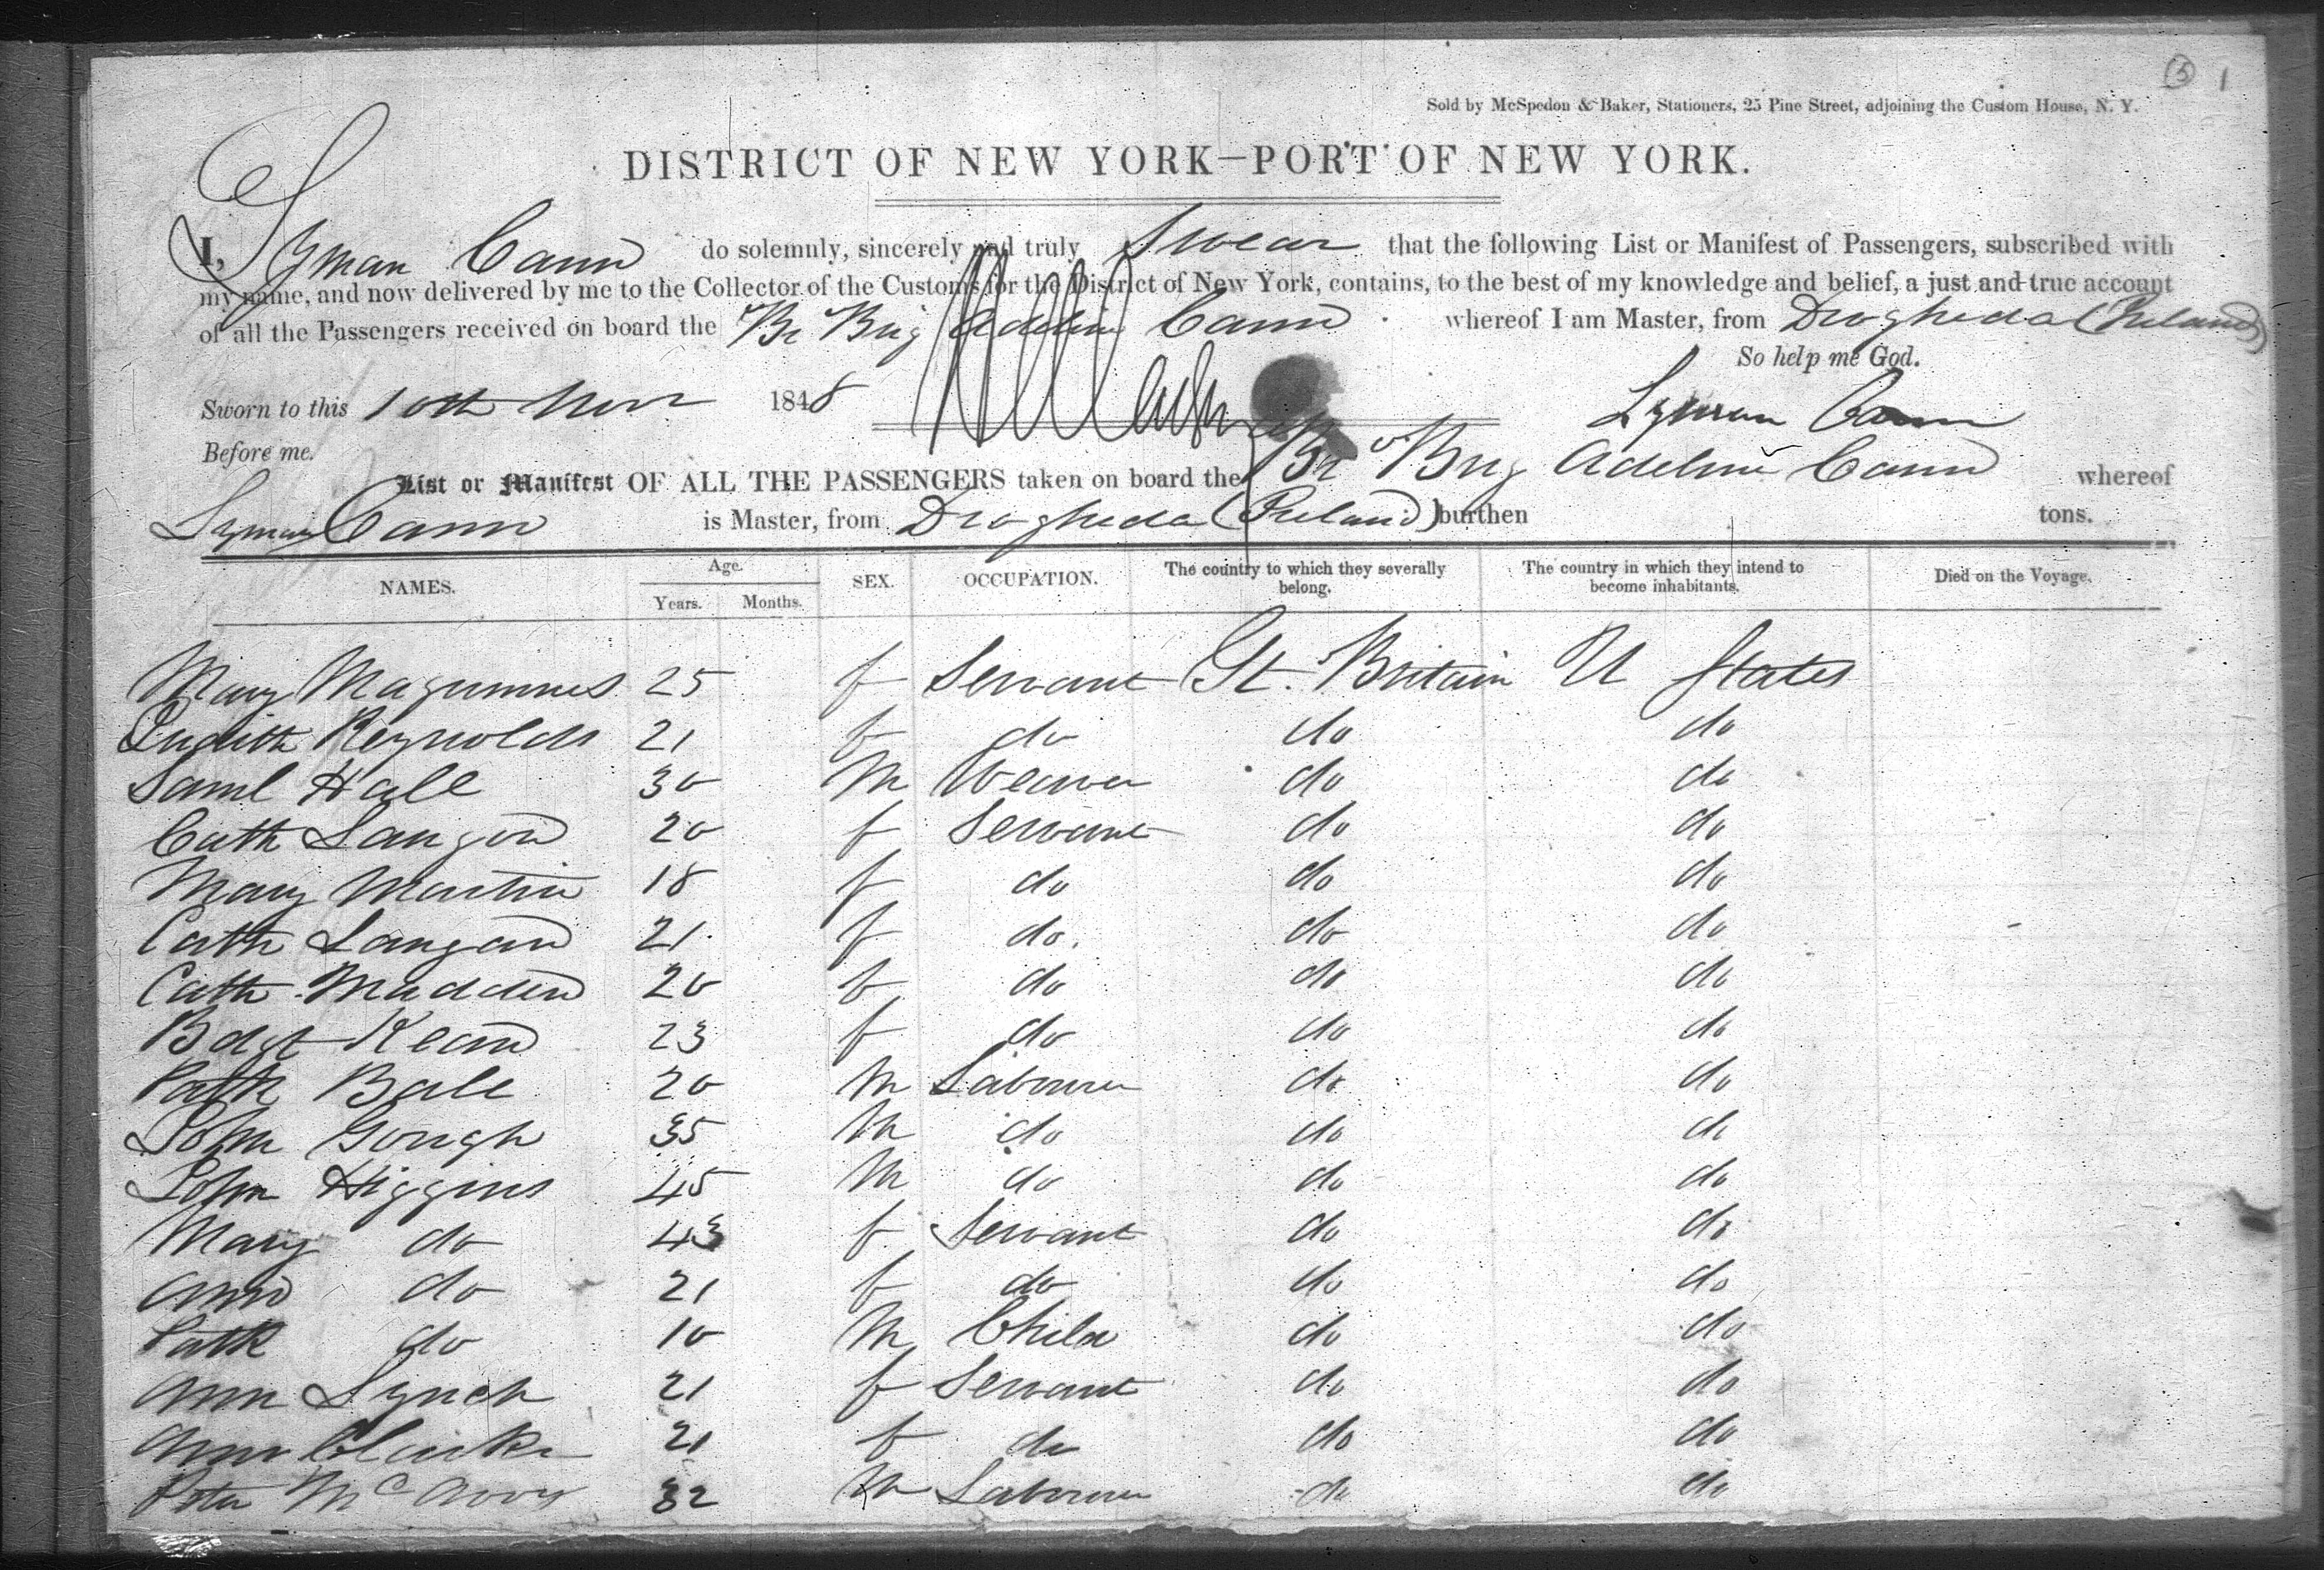 5 1
Sold by McSpedon & Baker, Stationers, 25 Pine Street, adjoining the Custom House, N. Y.
DISTRICT OF NEW YORK—PORT OF NEW YORK.
I, Lyman Cann do solemnly, sincerely and truly Swear that the following List or Manifest of Passengers, subscribed with
my name, and now delivered by me to the Collector of the Customs for the District of New York, contains, to the best of my knowledge and belief, a just and true account
of all the Passengers received on board the Br Brig Adeline Cann whereof I am Master, from Drogheda (Ireland)
So help me God.
Sworn to this 10th Novr 1848
Lyman Cann
Before me.
List or Manifest OF ALL THE PASSENGERS taken on board the Br Brig Adeline Cann whereof
Lyman Cann is Master, from Drogheda (Ireland) burthen tons.
NAMES. Age. Years. Months. SEX. OCCUPATION. The country to which they severally belong. The country in which they intend to become inhabitants. Died on the Voyage.
Mary Magunnes 25 f Servant Gt. Britain U States
Judith Reynolds 21 f do do do
Saml Hale 30 M Weaver do do
Cath Langon 20 f Servant do do
Mary Martin 18 f do do do
Cath Langan 21 f do. do do
Cath Madden 20 f do do do
Bdgt Kean 23 f do do do
Patk Bale 20 M Labourer do do
John Gough 35 M do do do
John Higgins 45 M do do do
Mary do 43 f Servant do do
Ann do 21 f do do do
Patk do 10 M Child do do
Ann Lynch 21 f Servant do do
Ann Clarke 21 f do do do
Peter McAvoy 32 M Labourer do do